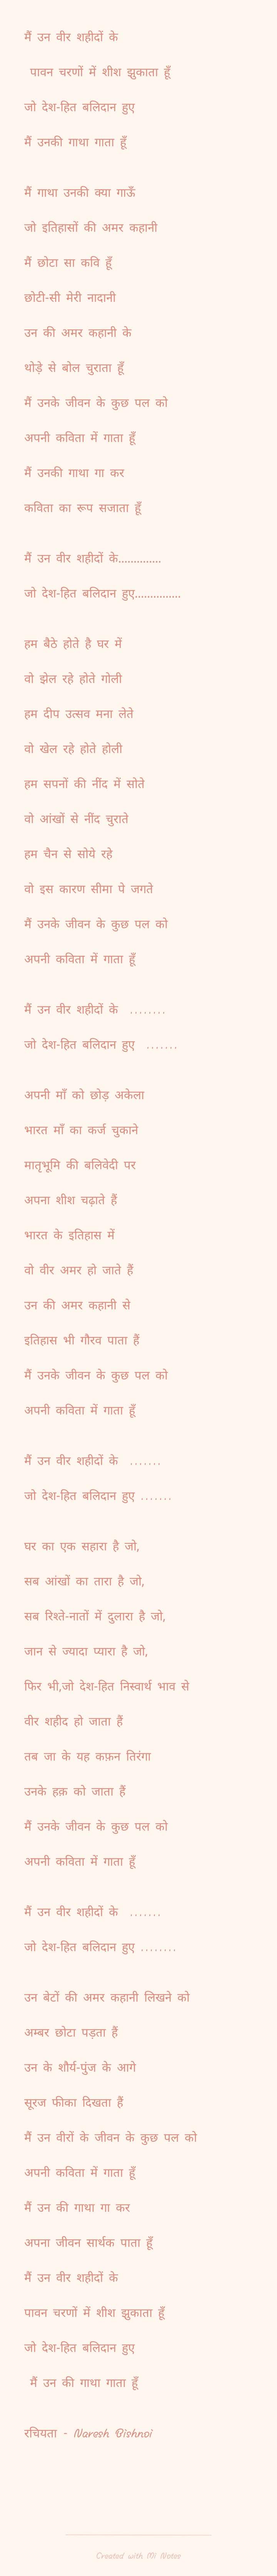 मैं उन वीर शहीदों के
पावन चरणों में शीश झुकाता हूँ
जो देश-हित बलिदान हुए
मैं उनकी गाथा गाता हूँ
मैं गाथा उनकी क्या गाऊँ
जो इतिहासों की अमर कहानी
मैं छोटा सा कवि हूँ
छोटी-सी मेरी नादानी
उन की अमर कहानी के
थोड़े से बोल चुराता हूँ
मैं उनके जीवन के कुछ पल को
अपनी कविता में गाता हूँ
मैं उनकी गाथा गा कर
कविता का रूप सजाता हूँ
मैं उन वीर शहीदों के..............
जो देश-हित बलिदान हुए...............
हम बैठे होते है घर में
वो झेल रहे होते गोली
हम दीप उत्सव मना लेते
वो खेल रहे होते होली
हम सपनों की नींद में सोते
वो आंखों से नींद चुराते
हम चैन से सोये रहे
वो इस कारण सीमा पे जगते
मैं उनके जीवन के कुछ पल को
अपनी कविता में गाता हूँ
मैं उन वीर शहीदों के ........
जो देश-हित बलिदान हुए .......
अपनी माँ को छोड़ अकेला
भारत माँ का कर्ज चुकाने
मातृभूमि की बलिवेदी पर
अपना शीश चढ़ाते हैं
भारत के इतिहास में
वो वीर अमर हो जाते हैं
उन की अमर कहानी से
इतिहास भी गौरव पाता हैं
मैं उनके जीवन के कुछ पल को
अपनी कविता में गाता हूँ
मैं उन वीर शहीदों के .......
जो देश-हित बलिदान हुए .......
घर का एक सहारा है जो,
सब आंखों का तारा है जो,
सब रिश्ते-नातों में दुलारा है जो,
जान से ज्यादा प्यारा है जो,
फिर भी,जो देश-हित निस्वार्थ भाव से
वीर शहीद हो जाता हैं
तब जा के यह कफ़न तिरंगा
उनके हक़ को जाता हैं
मैं उनके जीवन के कुछ पल को
अपनी कविता में गाता हूँ
मैं उन वीर शहीदों के .......
जो देश-हित बलिदान हुए ........
उन बेटों की अमर कहानी लिखने को
अम्बर छोटा पड़ता हैं
उन के शौर्य-पुंज के आगे
सूरज फीका दिखता हैं
मैं उन वीरों के जीवन के कुछ पल को
अपनी कविता में गाता हूँ
मैं उन की गाथा गा कर
अपना जीवन सार्थक पाता हूँ
मैं उन वीर शहीदों के
पावन चरणों में शीश झुकाता हूँ
जो देश-हित बलिदान हुए
मैं उन की गाथा गाता हूँ
रचियता - Naresh Bishnoi
Created with Mi Notes